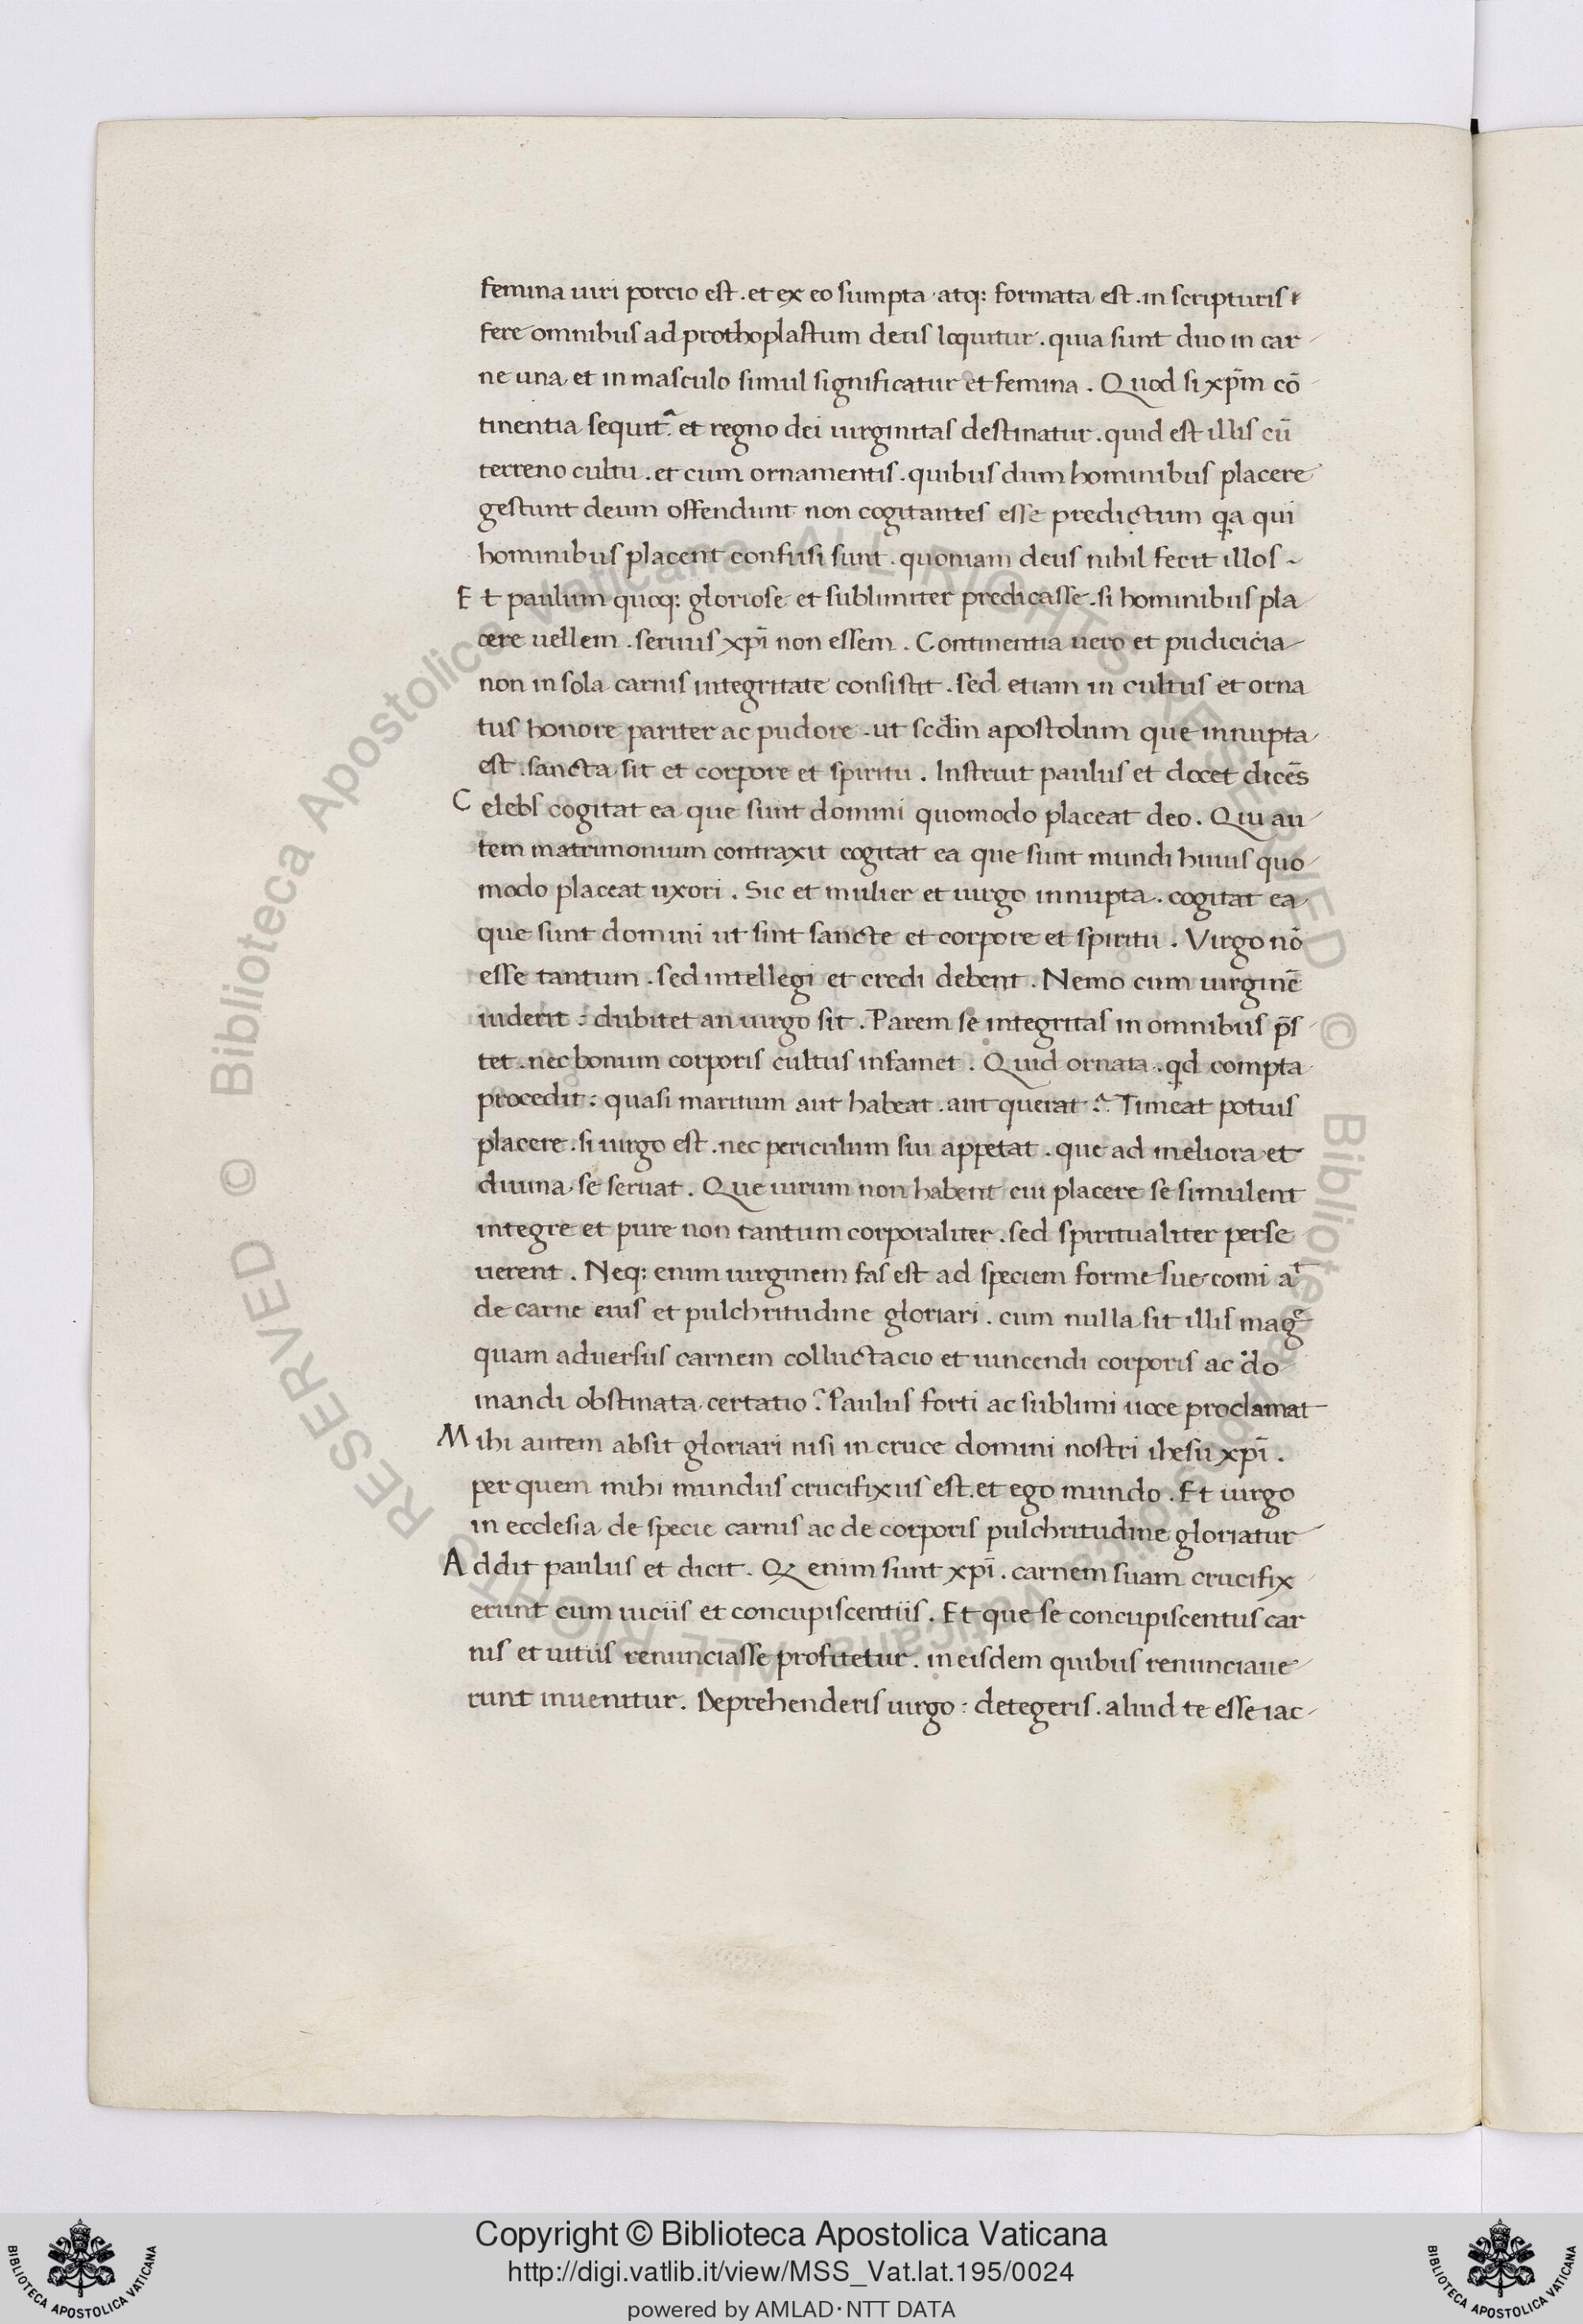 femina uiri porcio est . et ex eo sumpta atq: formata est . in scripturis
fere omnibus ad prothoplastum deus loquitur . quia sunt duo in car
ne una et in masculo simul significatur et femina . Quod si xp̄m cō
tinentia sequit᷑ et regno dei uirginitas destinatur . quid est illis cū
terreno cultu . et cum ornamentis . quibus dum hominibus placere
gestunt deum offendunt non cogitantes esse predictum qa qui
hominibus placent confusi sunt . quoniam deus nihil fecit illos ~
Et paulum quoq: gloriose et sublimiter predicasse . si hominibus pla
cere uellem . seruus xp̄i non essem . Continentia uero et pudicicia
non in sola carnis integritate consistit . sed etiam in cultus et orna
tus honore pariter ac pudore . ut scđm apostolum que innupta
est . sancta sit et corpore et spiritu . Instruit paulus et docet dicēs
Celebs cogitat ea que sunt domini quomodo placeat deo . Qui au
tem matrimonium contraxit cogitat ea que sunt mundi huius quo
modo placeat uxori . Sic et mulier et uirgo innupta . cogitat ea
que sunt domini ut sint sancte et corpore et spiritu . Virgo nō
esse tantum . sed intellegi et credi debent . Nemo cum uirginē
uiderit : dubitet an uirgo sit . Parem se integritas in omnibus p̄s
tet . nec bonum corporis cultus infamet . Quid ornata . qd compta
procedit : quasi maritum aut habeat . aut querat ? Timeat potius
placere . si uirgo est . nec periculum sui appetat . que ad meliora et
diuina se seruat . Que uirum non habent cui placere se simulent
integre et pure non tantum corporaliter . sed spiritualiter perse
uerent . Neq: enim uirginem fas est ad speciem forme sue comi aᵗ
de carne eius et pulchritudine gloriari . cum nulla sit illis mag̊
quam aduersus carnem colluctacio et uincendi corporis ac do
mandi obstinata certatio ? Paulus forti ac sublimi uoce proclamat
Mihi autem absit gloriari nisi in cruce domini nostri ihesu xp̄i .
per quem mihi mundus crucifixus est . et ego mundo . Et uirgo
in ecclesia de specie carnis ac de corporis pulchritudine gloriatur
Addit paulus et dicit . Q enim sunt xp̄i . carnem suam crucifix
erunt cum uiciis et concupiscentiis . Et que se concupiscentus car
nis et uitiis renunciasse profitetur . in eisdem quibus renunciaue
runt inuenitur . Deprehenderis uirgo : detegeris . aliud te esse iac
© Biblioteca Apostolica Vaticana ALL RIGHTS RESERVED © Biblioteca Apostolica Vaticana ALL RIGHTS RESERVED
Copyright © Biblioteca Apostolica Vaticana
http://digi.vatlib.it/view/MSS_Vat.lat.195/0024
powered by AMLAD·NTT DATA
BIBLIOTECA APOSTOLICA VATICANA
BIBLIOTECA APOSTOLICA VATICANA